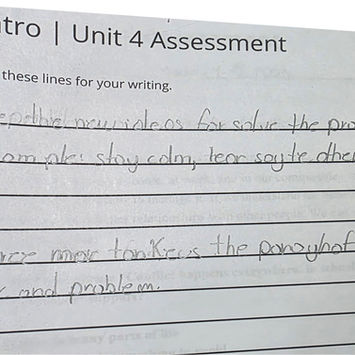 tro | Unit 4 Assessment
these lines for your writing.
new ideos for solve the pro
omple: stay colm, tear sayte other
more tonKews the
and problem.